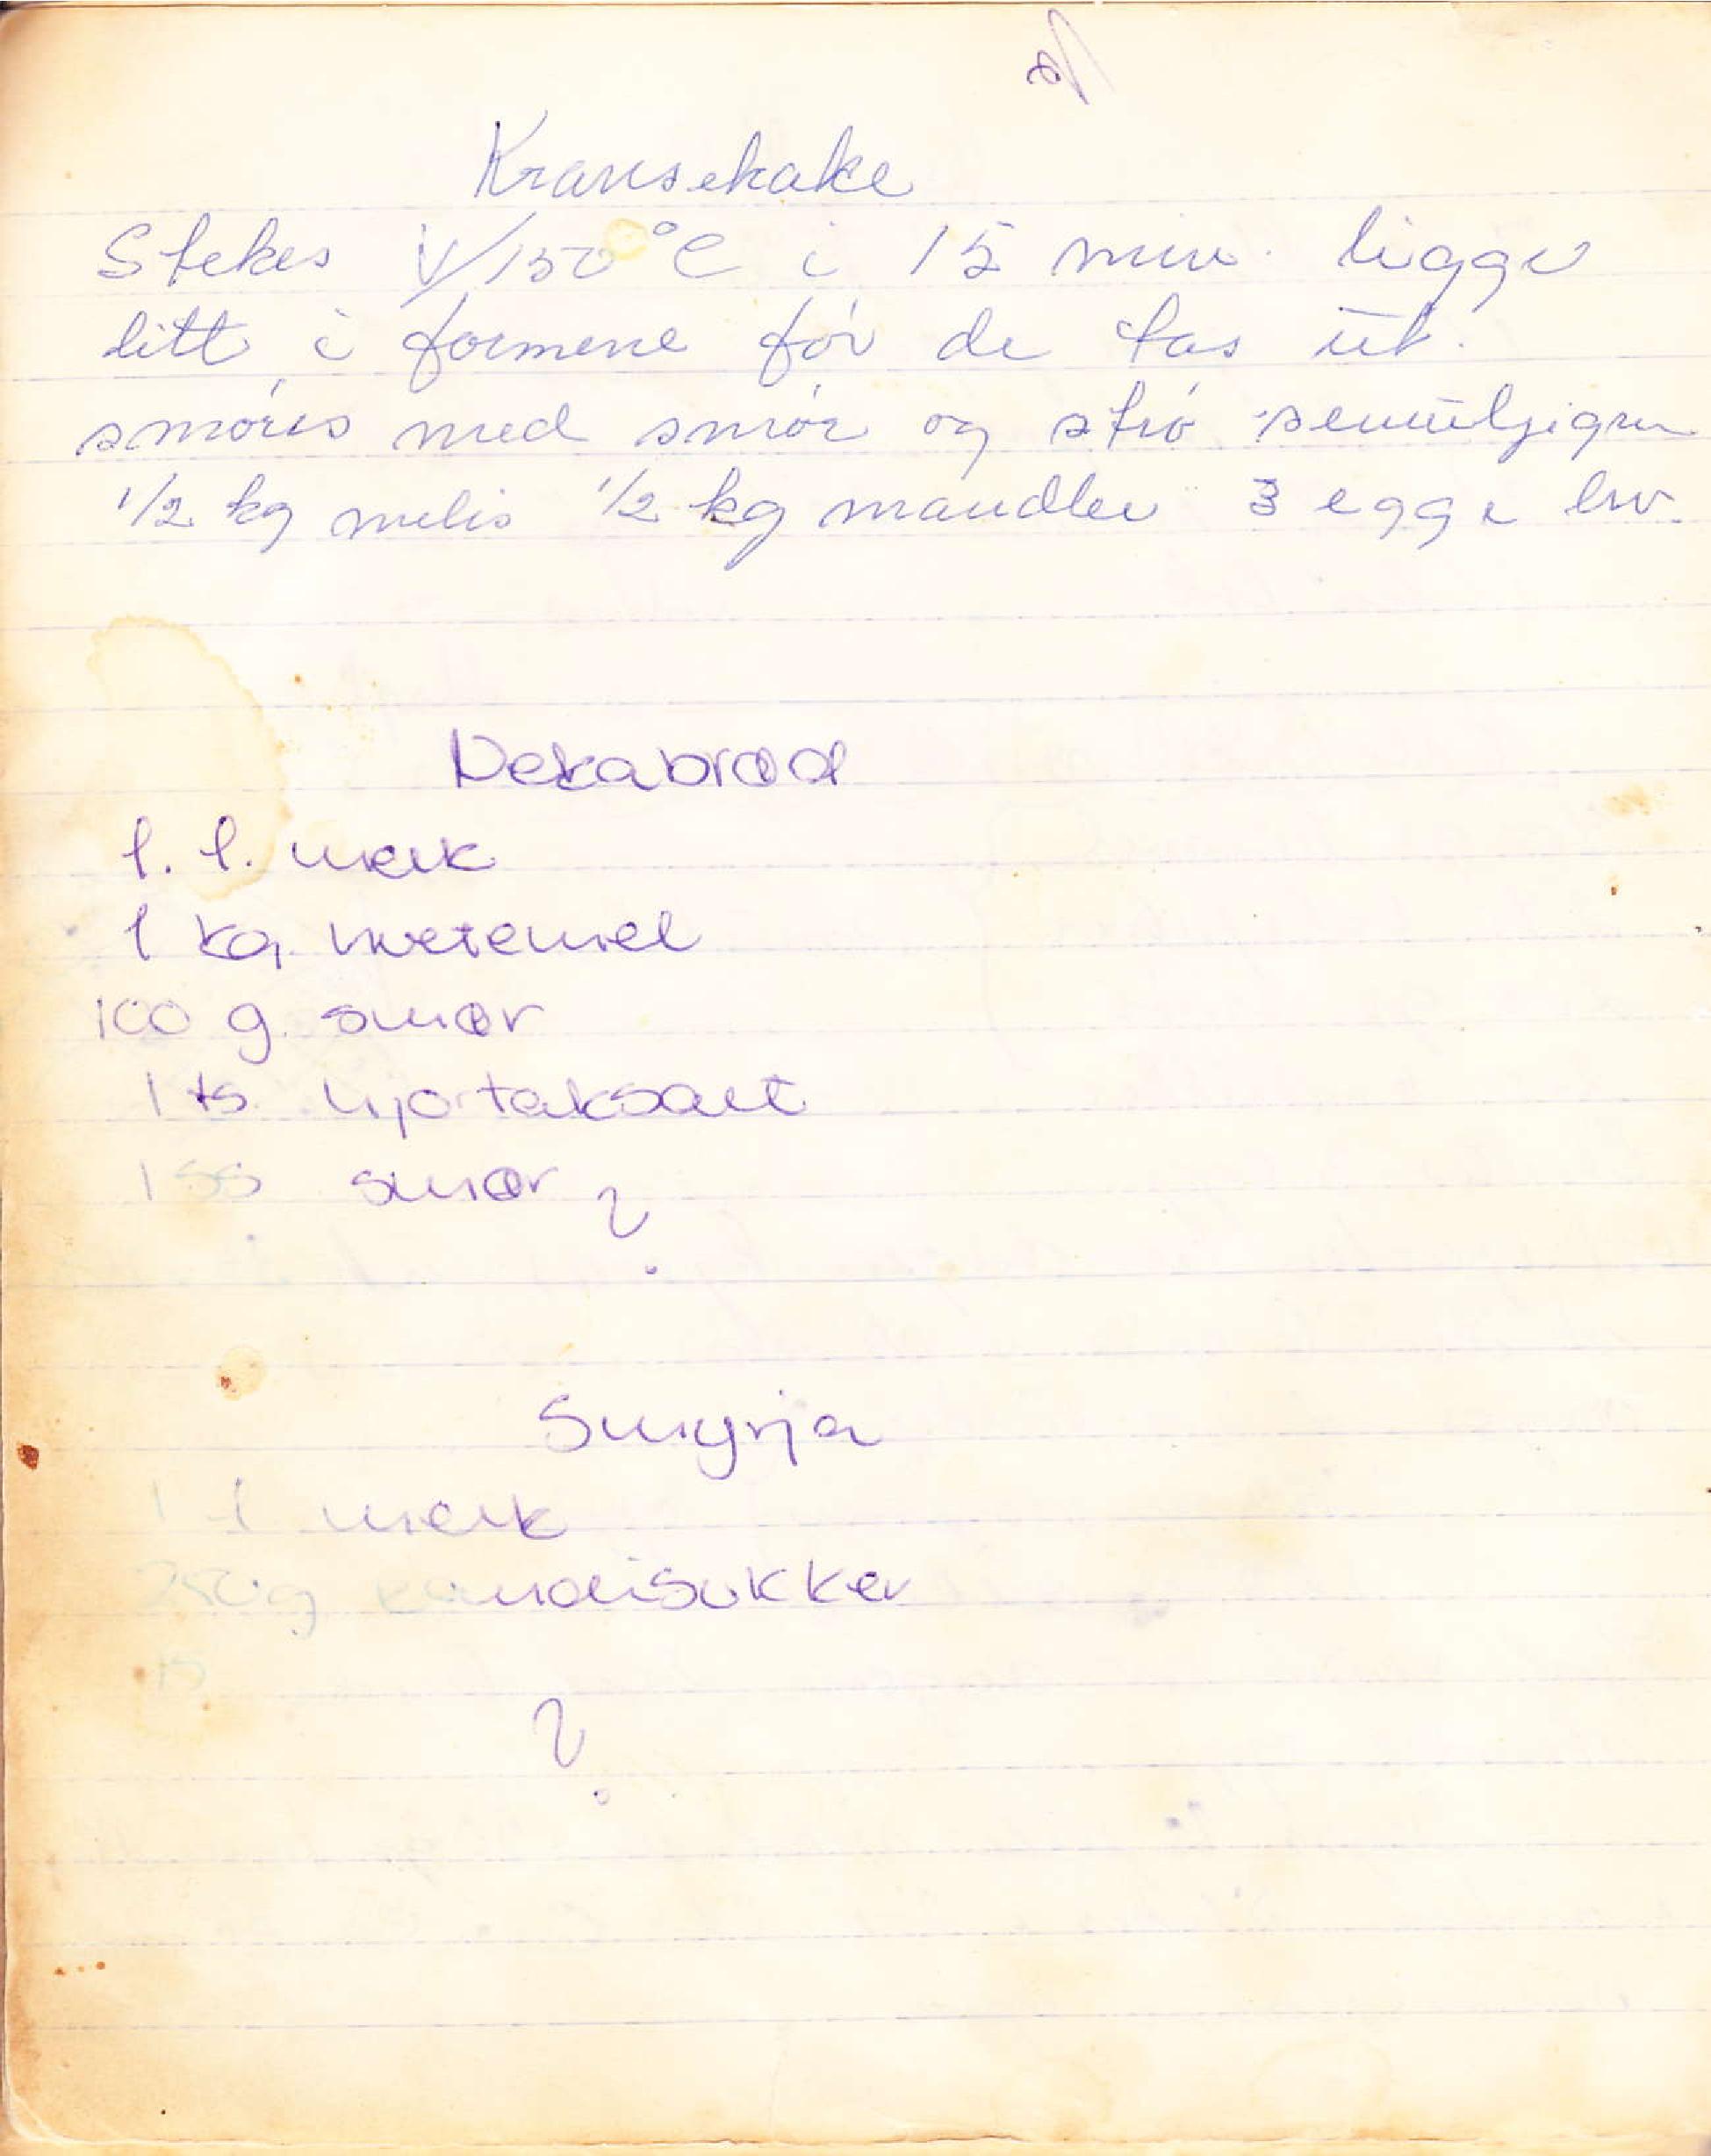 Kransekake
Stekes v/150°C i 15 min. ligge
litt i formene før de tas ut.
smøres med smør og strø semuljigrun
1/2 kg melis 1/2 kg mandler 3 egge hv.
Dekabrød
1. l. melk
1 kg. hvetemel
100 g. smør
1 ts. hjortaksalt
1 ss smør ?
Smyrja
1 l melk
250 g kandisukker
1 ts
?